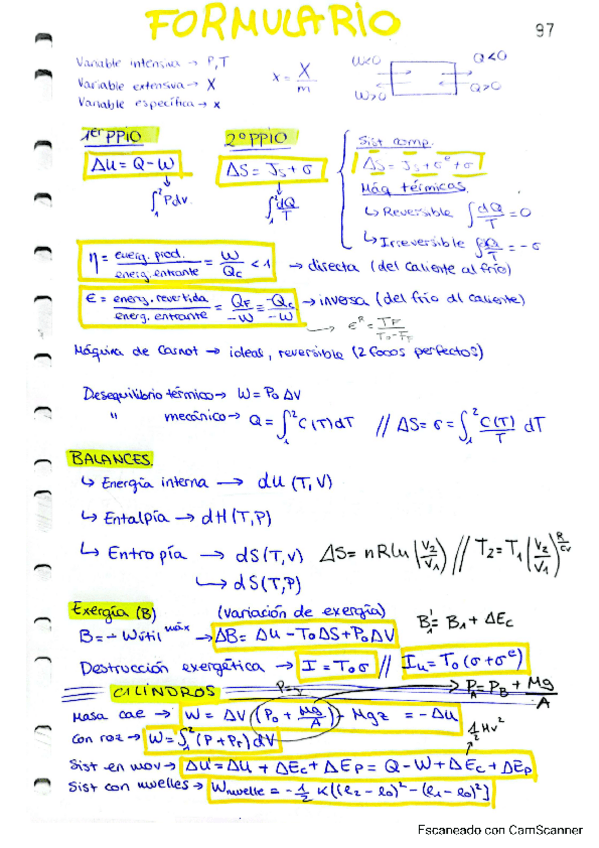 FORMULARIO
97
Variable intensiva → P,T
Variable extensiva → X
Variable específica → x
x = X/m
W<0 Q<0
W>0 Q>0
1er PPIO 2º PPIO
ΔU = Q - W ΔS = Js + σ
∫₁² Pdv ∫₁² dQ/T
Sist comp.
ΔS = Js + σᵉ + σ
Máq térmicas
↳ Reversible ∫dQ/T = 0
↳ Irreversible ∫dQ/T = -σ
η = energ. prod./energ. entrante = W/Qc < 1 → directa (del caliente al frío)
ε = energ. revertida/energ. entrante = QF/-W = -Qc/-W → inversa (del frío al caliente)
→ εᴿ = TF/T0-TF
Máquina de Carnot → ideal, reversible (2 focos perfectos)
Desequilibrio térmico → W = P0 ΔV
" mecánico → Q = ∫₁² C(T)dT // ΔS = σ = ∫₁² C(T)/T dT
BALANCES.
↳ Energía interna → dU (T,V)
↳ Entalpía → dH (T,P)
↳ Entropía → dS (T,V) ΔS = nRln(V2/V1) // T2 = T1 (V2/V1)^R/cv
↳ dS (T,P)
Exergía (B) (variación de exergía) B¹₁ = B1 + ΔEc
B = - Wútil máx → ΔB = ΔU - T0ΔS + P0ΔV
Destrucción exergética → I = T0σ // Iu = T0 (σ + σᵉ)
CILINDROS P= → PA = PB + Mg/A
Masa cae → W = ΔV (P0 + Mg/A) - Mgz = - ΔU
con roz → W = ∫₁² (P + Pr) dV ½Mv²
Sist en mov → ΔU = ΔU + ΔEc + ΔEp = Q - W + ΔEc + ΔEp
Sist con muelles → Wmuelle = - ½ K[(l2 - l0)² - (l1 - l0)²]
Escaneado con CamScanner